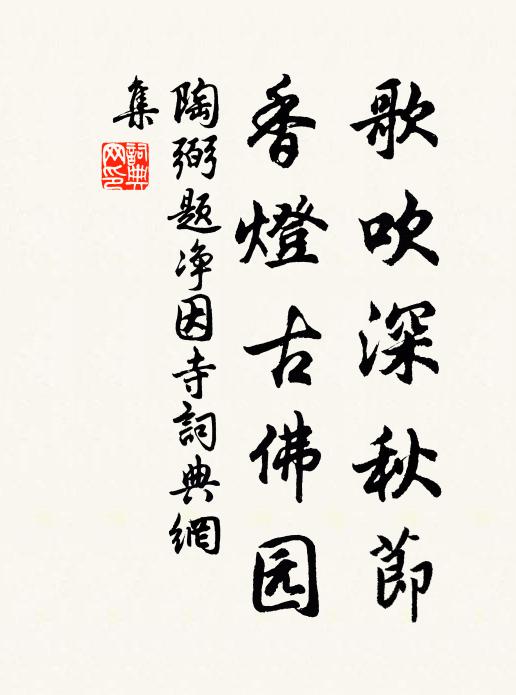 歌吹深秋節
香燈古佛园
陶弼题净因寺詞典網
集
詞典
网印